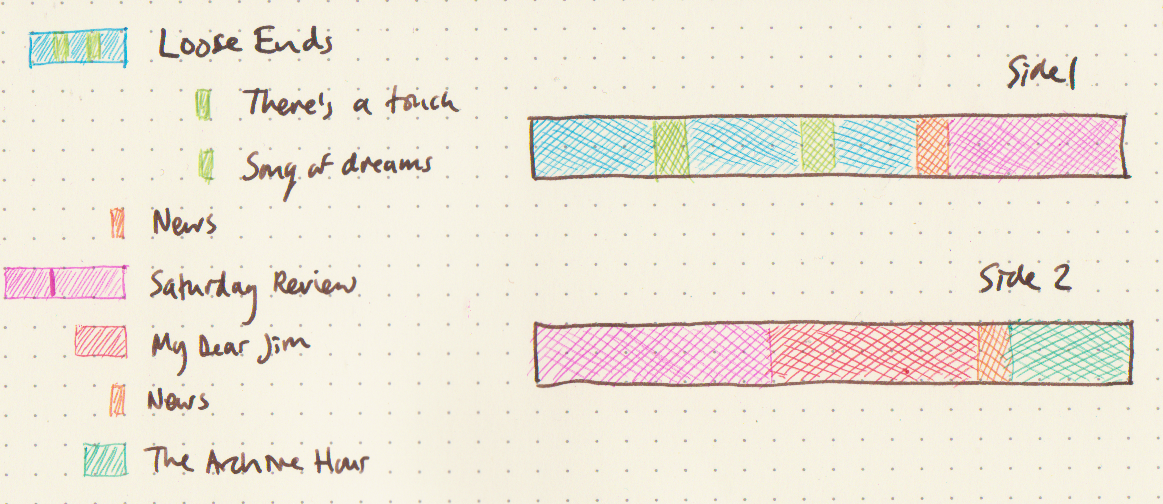 Loose Ends
There's a touch
Song of dreams
News
Saturday Review
My Dear Jim
News
The Archive Hour
Side 1
Side 2